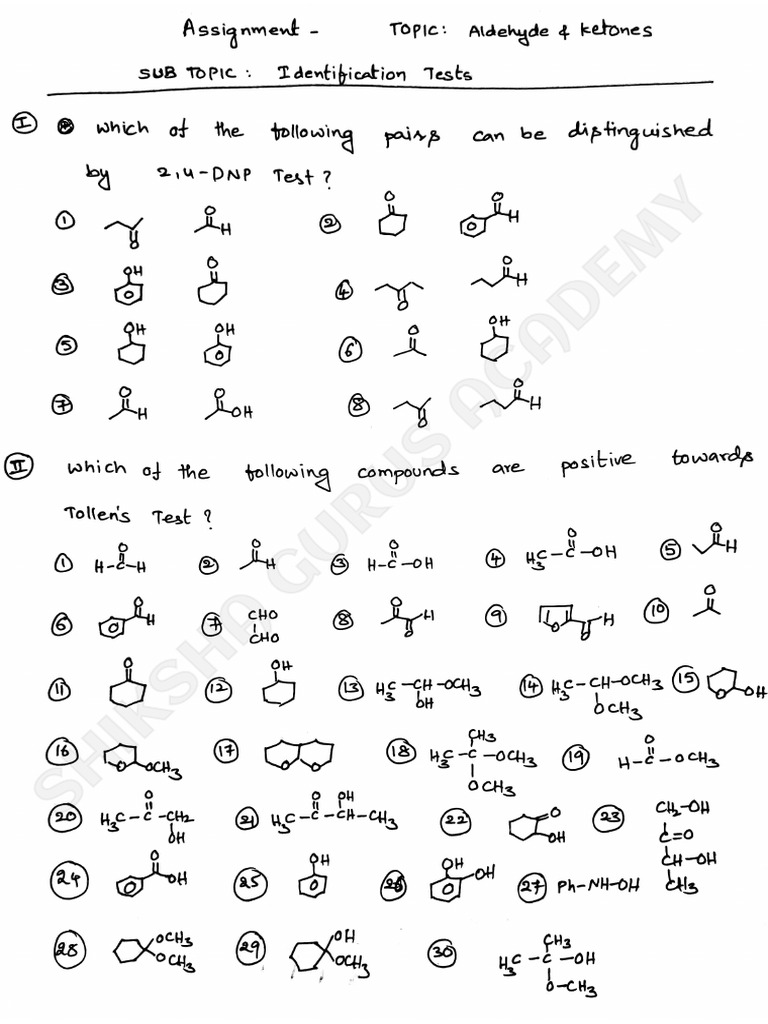 Assignment - TOPIC: Aldehyde & Ketones
SUB TOPIC: Identification Tests
I which of the following pairs can be distinguished
by 2,4-DNP Test?
1 O O H 2 O O H
3 OH O 4 O O H
5 OH OH 6 O OH
7 O H O OH 8 O O H
II which of the following compounds are positive towards
Tollen's Test?
1 H-C-H O 2 O H 3 H-C-OH O 4 H3C-C-OH O 5 O H
6 O H 7 CHO CHO 8 O O H 9 O O H 10 O
11 O 12 OH 13 H3C-CH-OCH3 OH 14 H3C-CH-OCH3 OCH3 15 O OH
16 O OCH3 17 O O 18 CH3 H3C-C-OCH3 OCH3 19 O H-C-OCH3
20 O H3C-C-CH2 OH 21 O OH H3C-C-CH-CH3 22 O OH 23 CH2-OH C=O CH-OH CH3
24 O OH 25 OH 26 OH OH 27 Ph-NH-OH
28 OCH3 OCH3 29 OH OCH3 30 CH3 H3C-C-OH O-CH3
SHIKSHA GURUS ACADEMY